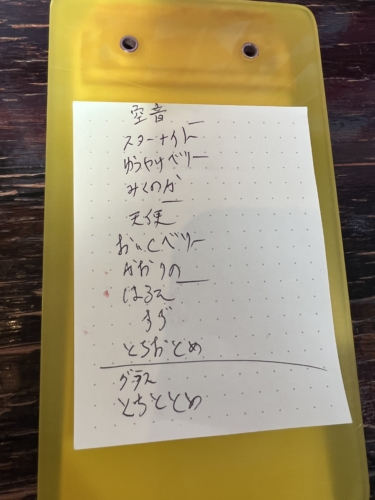 空音
スターナイト
ゆうやけベリー
みくのか
天使
おいCベリー
かおりの
はるえ
すず
とちおとめ
グラス
とちととめ